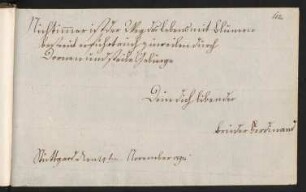 Nicht immer ist der Weg des Lebens mit Blumen
bestreut er führt auch zuweilen durch
Dornen und steile Gebirge
Dein dich liebender
Bruder Ferdinand
Stuttgart den November